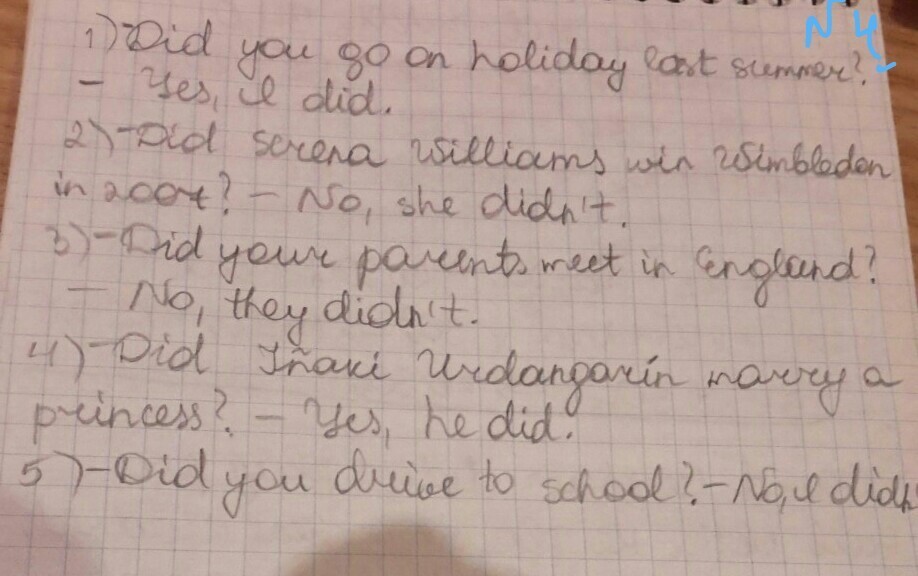 N 4.
1)-Did you go on holiday last summer?
- Yes, I did.
2)-Did Serena Williams win Wimbledon
in 2007? - No, she didn't.
3)-Did your parents meet in England?
- No, they didn't.
4)-Did Iñaki Urdangarín marry a
princess? - Yes, he did.
5)-Did you drive to school?-No, I didn